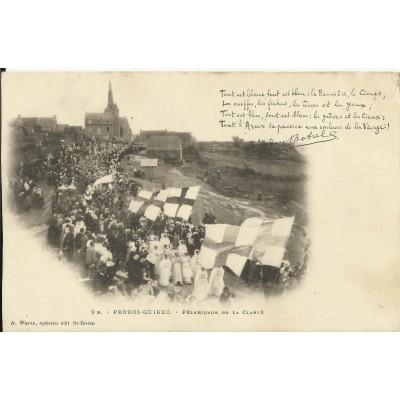 Tout est blanc tout est bleu : la Bannière, le Cierge,
Les coiffes, les fichus, les âmes et les yeux ;
Tout est bleu, tout est blanc : les grèves et les Cieux :
Tout l'Arvor a pavoisé aux couleurs de la Vierge !
Botrel
9 B. - PERROS-GUIREC. - PÉLERINAGE DE LA CLARTÉ
A. Waron, opticien édit. St-Brieuc